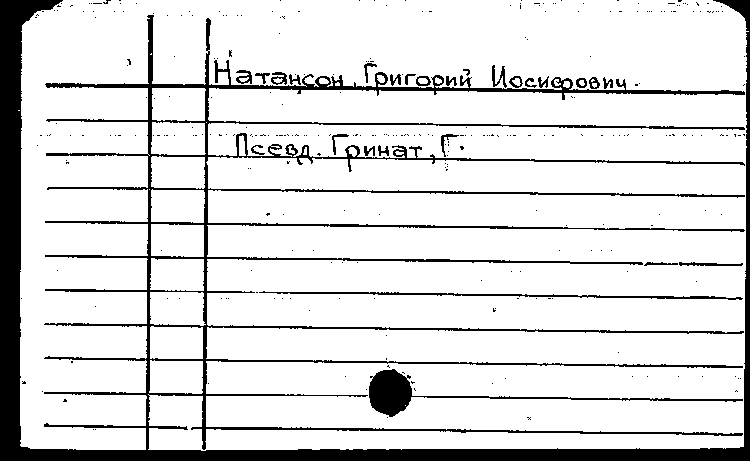 Натансон, Григорий Иосифович.
Псевд. Гринат, Г.